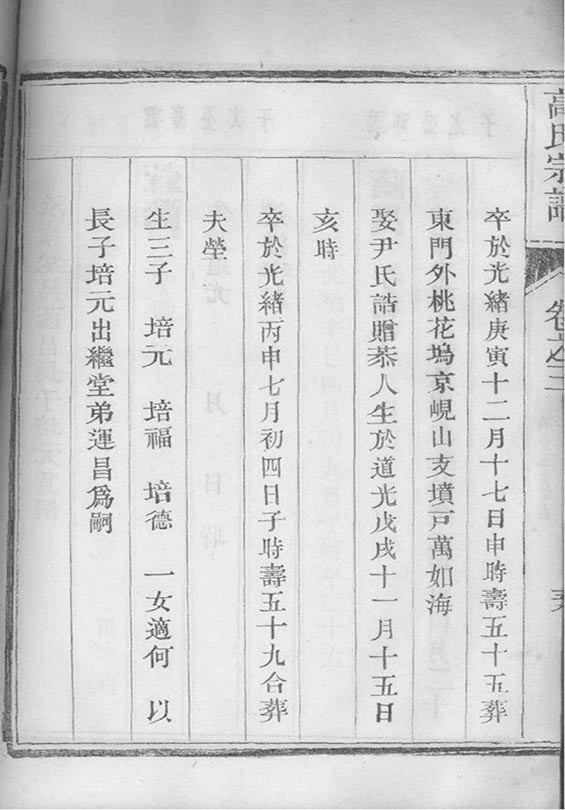 高氏宗譜
卷之三
卒於光緒庚寅十二月十七日申時壽五十五葬
東門外桃花塢京峴山支墳戶萬如海
娶尹氏誥贈恭人生於道光戊戌十一月十五日
亥時
卒於光緒丙申七月初四日子時壽五十九合葬
夫塋
生三子　培元　培福　培德　一女適何　以
長子培元出繼堂弟運昌爲嗣